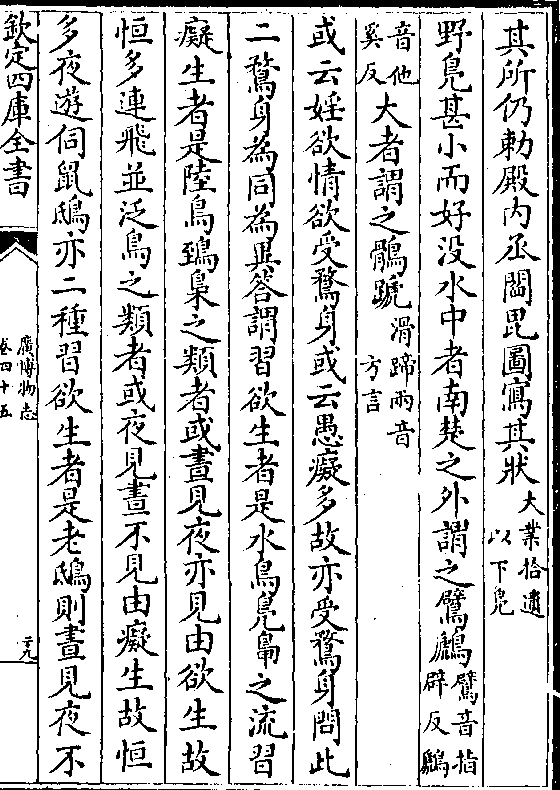 其所仍勅殿内丞閻毘圖寫其狀大業拾遺以下鳬
野鳬甚小而好没水中者南楚之外謂之鷿鷉鷿音指辟反鷉
音他奚反大者謂之鶻蹏滑蹄兩音方言
或云婬欲情欲受鶩身或云愚癡多故亦受鶩身問此
二鶩身為同為異答謂習欲生者是水鳥鳬鳧之流習
癡生者是陸鳥鵄梟之類者或晝見夜亦見由欲生故
恒多連飛並泛鳥之類者或夜見晝不見由癡生故恒
多夜遊伺鼠鴟亦二種習欲生者是老鴟則晝見夜不
欽定四庫全書
廣博物志
卷四十五